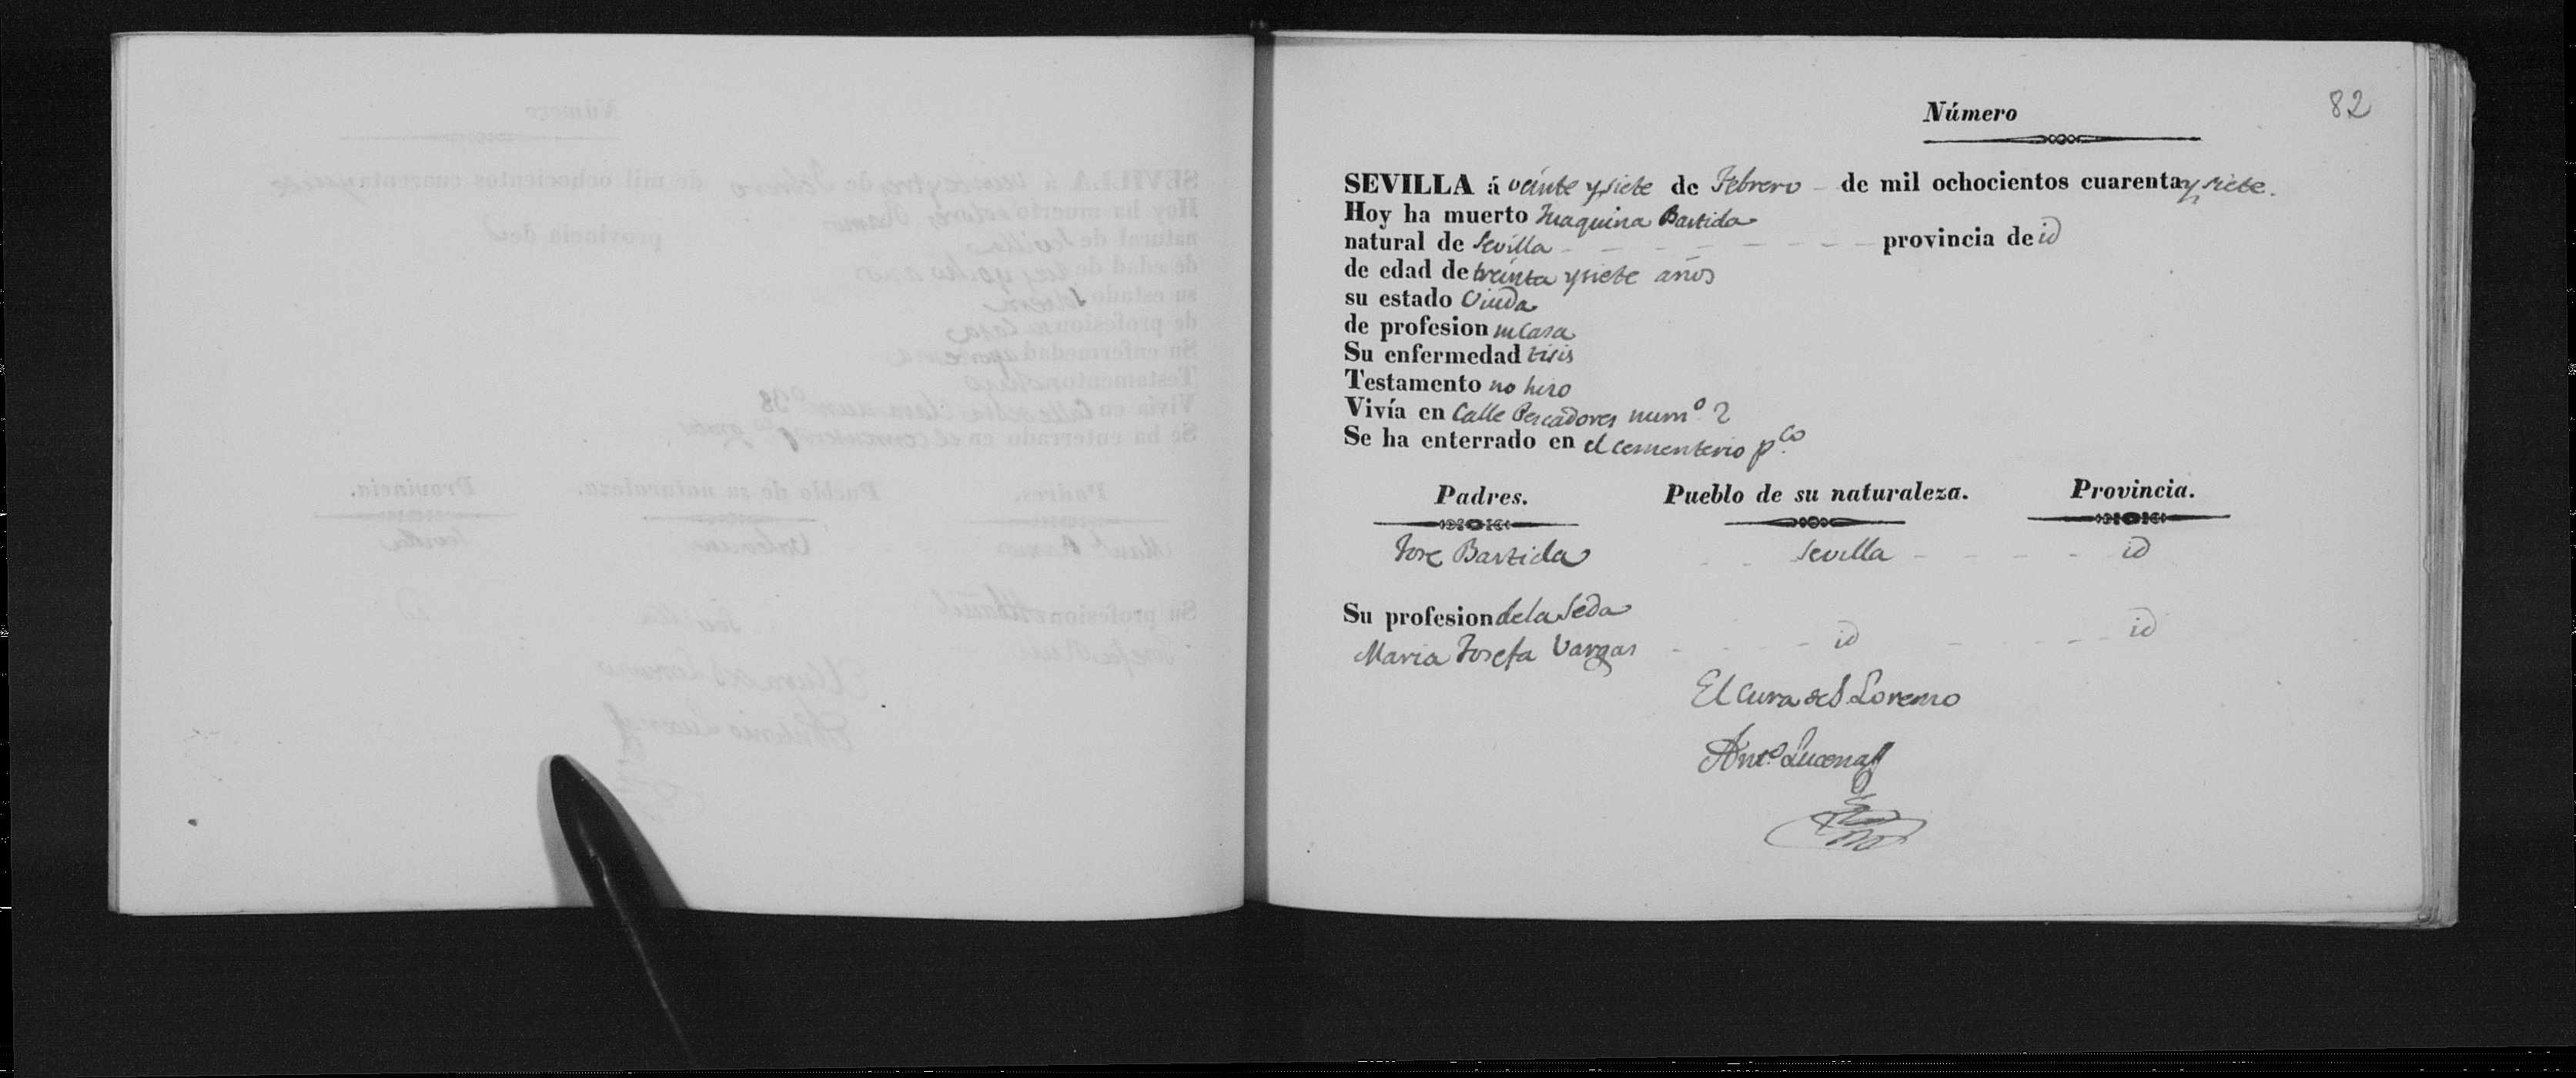 82
Número
SEVILLA á veinte y siete de Febrero - de mil ochocientos cuarenta y siete.
Hoy ha muerto Juaquina Bastida
natural de Sevilla - - - - - - - - provincia de id
de edad de treinta y siete años
su estado Viuda
de profesion su Casa
Su enfermedad tisis
Testamento no hiso
Vivía en Calle Pescadores num.º 2
Se ha enterrado en el cementerio p.co
Padres. Pueblo de su naturaleza. Provincia.
Jose Bastida - - Sevilla - - - - id
Su profesion de la Seda
Maria Josefa Vargas - - - - id - - - - id
El Cura de S. Lorenso
Ant.º Lucena